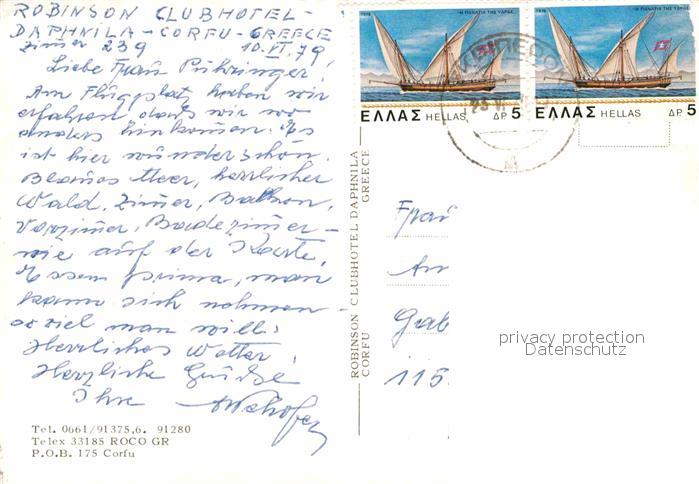 ROBINSON CLUBHOTEL-
DAPHNILA-CORFU-GREECE
Zimer 239 10.VI.79
Liebe Frau Pühringer!
Am Flugplat haben wir
erfahren daß wir wo
anders hinkomen. Es
ist hier wunderschön.
Blaues Meer, herrlicher
Wald, Zimer, Balkon,
Vorzimer, Badezimer-
wie auf der Karte.
Essen prima, man
kann sich nehmen
so viel man will.
Herrliches Wetter!
Herzliche Grüße
Ihre
Tel. 0661/91375,6. 91280
Telex 33185 ROCO GR
P.O.B. 175 Corfu
ROBINSON CLUBHOTEL DAPHNILA
CORFU GREECE
1978
ΕΛΛΑΣ HELLAS ΔΡ 5
1978
ΕΛΛΑΣ HELLAS ΔΡ 5
Frau
Am
Gab
115
privacy protection
Datenschutz